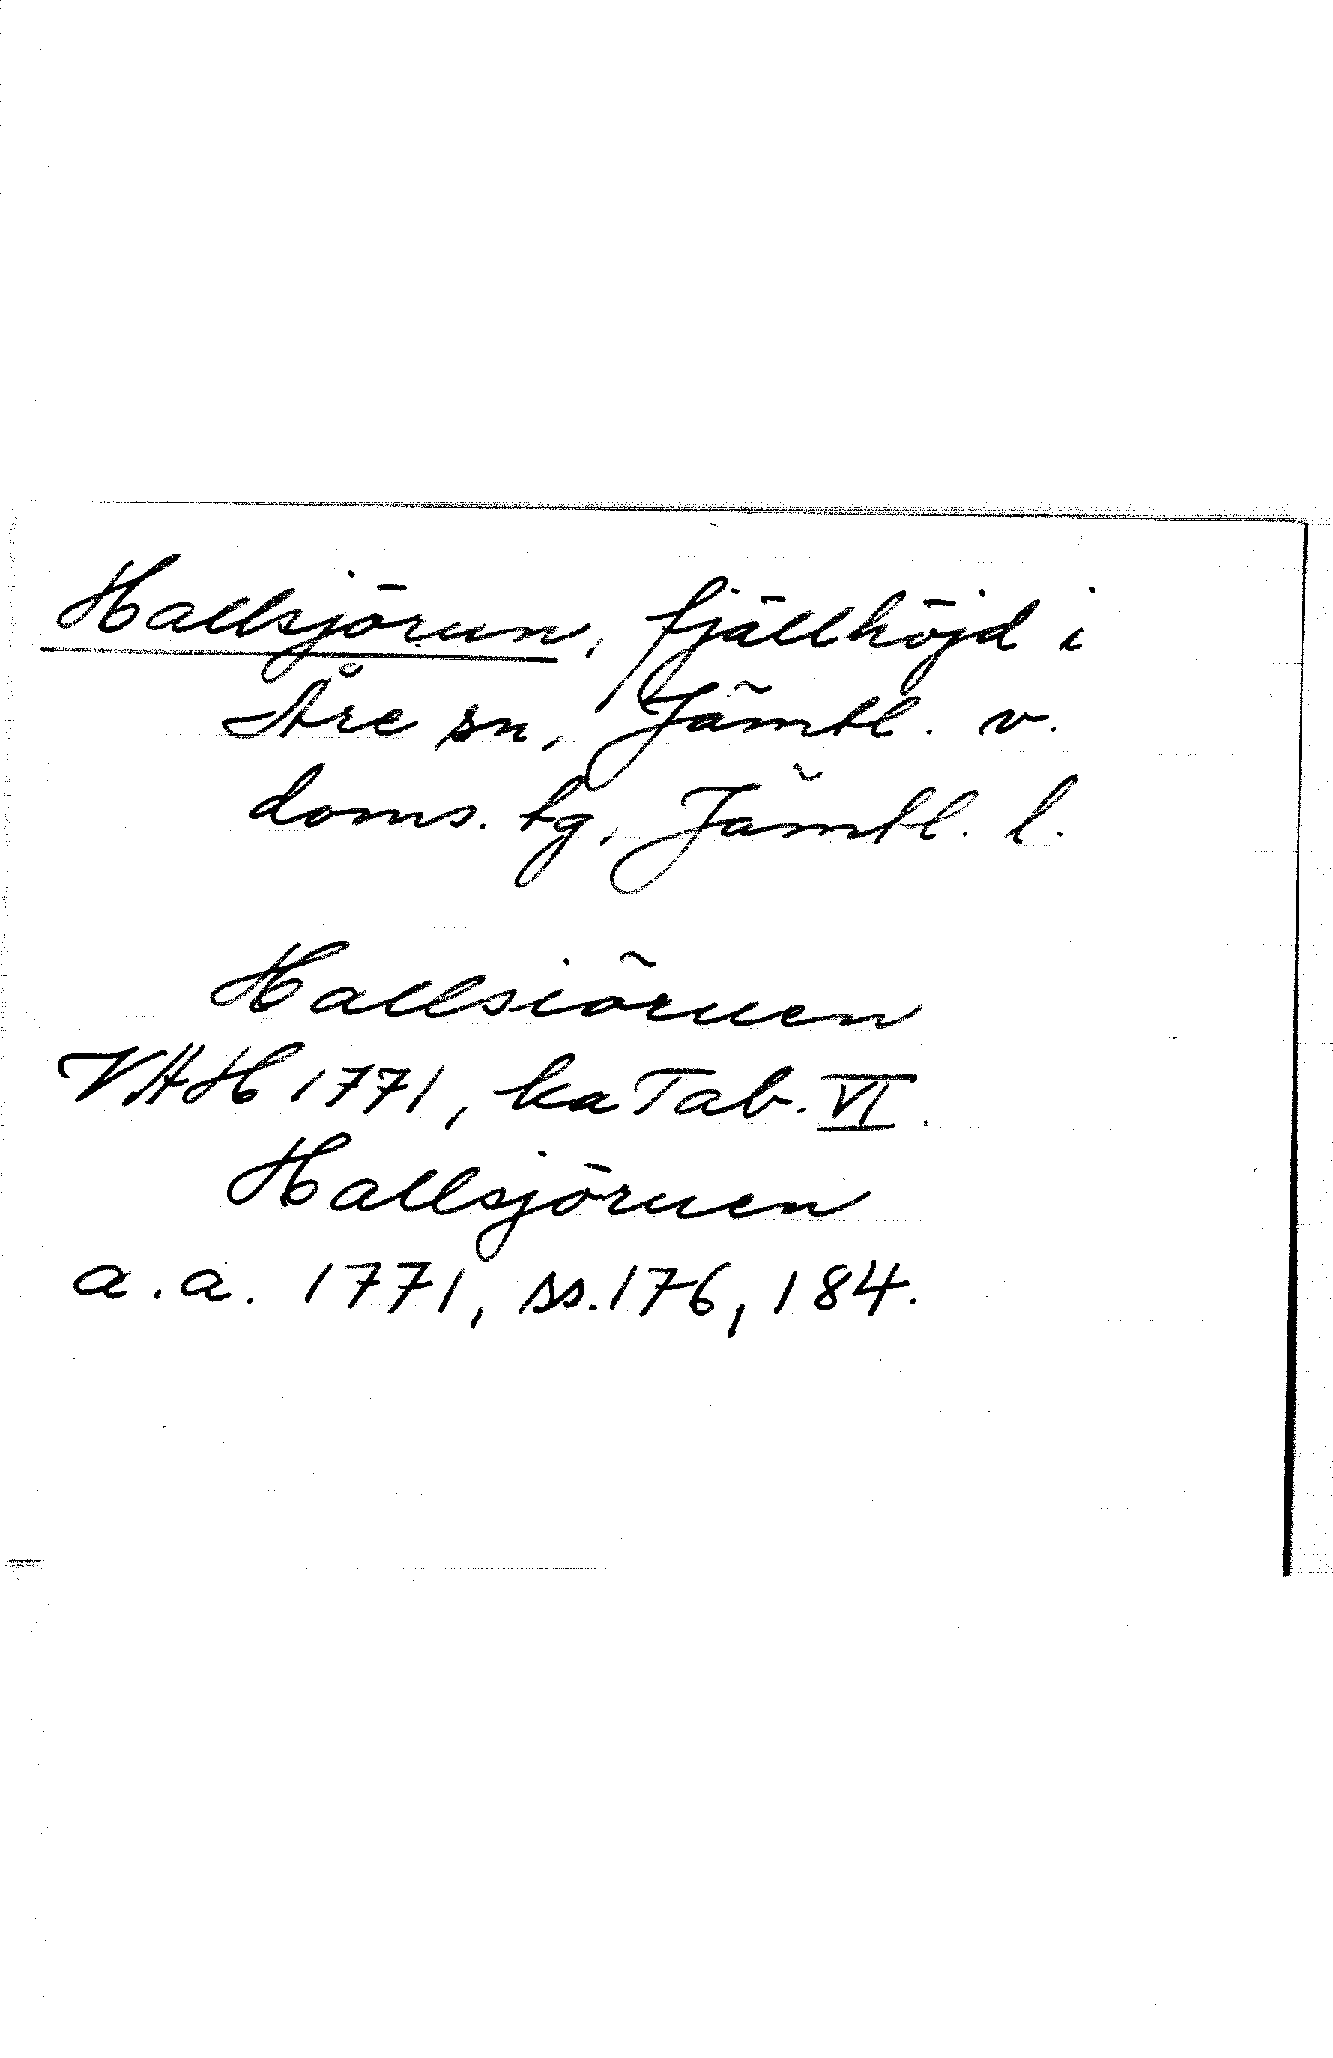 Hallsjörun, fjällhöjd i
Åre sn, Jämtl. v.
doms. tg, Jämtl. l.
Hallsiöruen
VHH 1771, ka Tab. VI.
Hallsjöruen
a. a. 1771, ss. 176, 184.